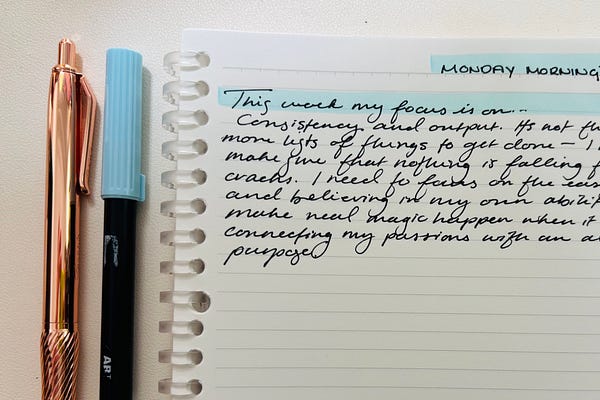 MONDAY MORNING
This week my focus is on...
Consistency and output. It's not th
more lists of things to get done – I
make sure that nothing is falling
cracks. I need to focus on the
and believing in my own abilit
make real magic happen when it
connecting my passions with an a
purpose
ART